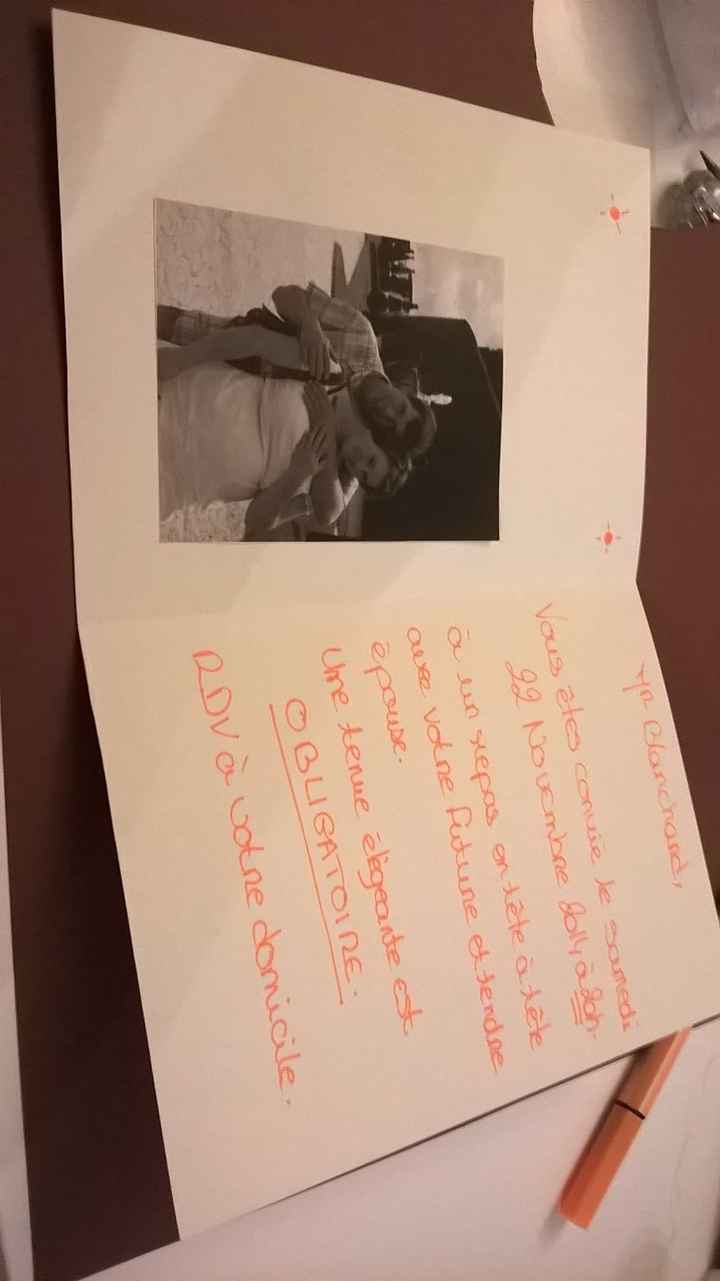 Mr Blanchard,
Vous êtes convié le samedi
22 Novembre 2014 à 20h.
à un repas en tête à tête
avec votre future et tendre
épouse.
Une tenue élégeante est
OBLIGATOIRE.
RDV à votre domicile.